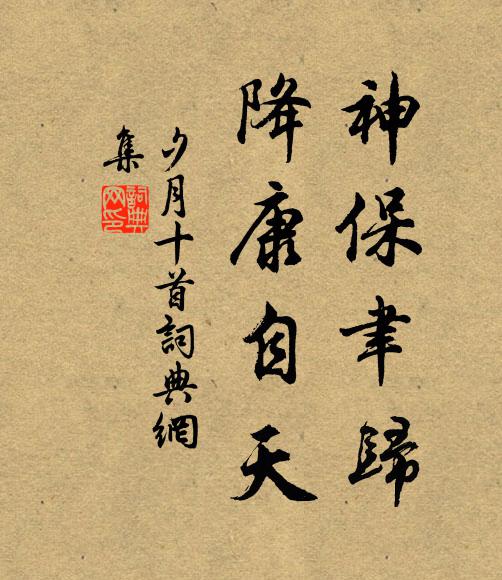 神保聿歸
降康自天
夕月十首詞典網
集
詞典
网印